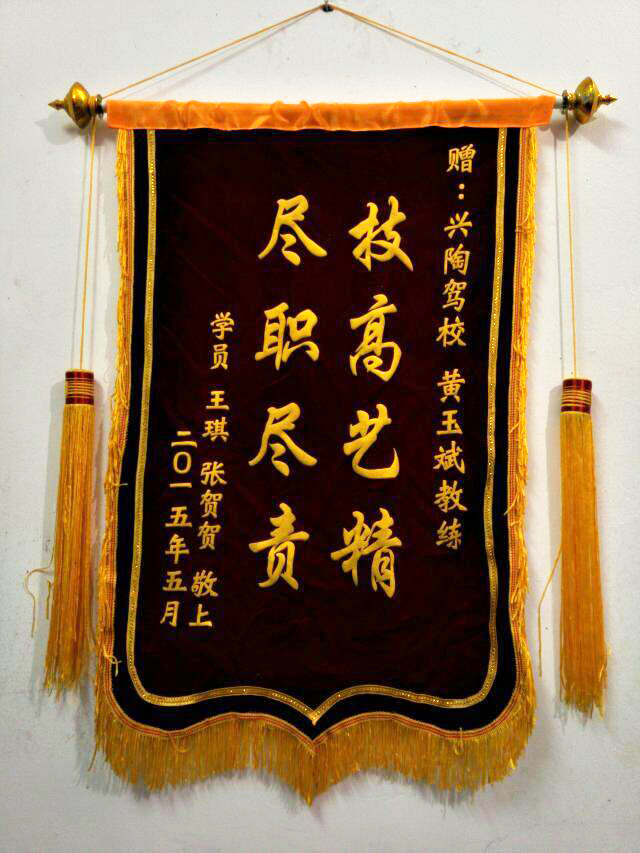 赠：兴陶驾校 黄玉斌教练
技高艺精
尽职尽责
学员 王琪 张贺贺 敬上
二〇一五年五月